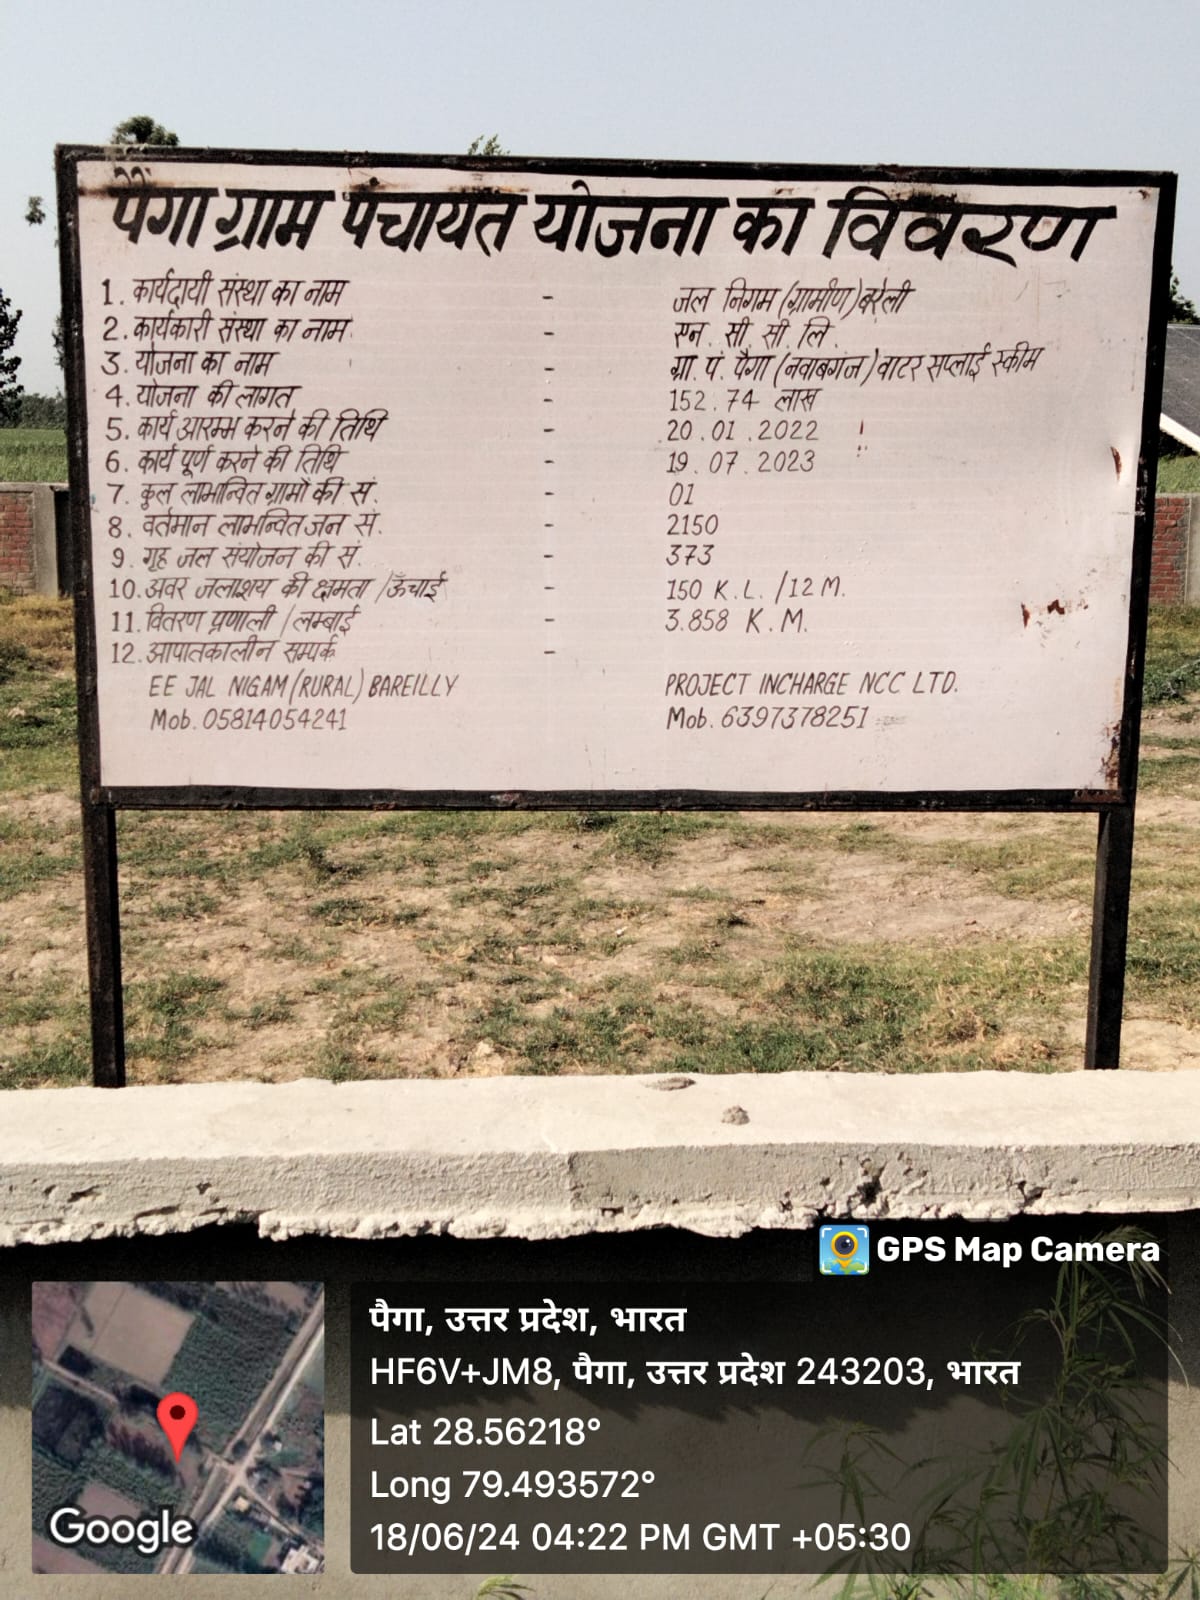 पैगा ग्राम पंचायत योजना का विवरण
1. कार्यदायी संस्था का नाम - जल निगम (ग्रामीण) बरेली
2. कार्यकारी संस्था का नाम - एन. सी. सी. लि.
3. योजना का नाम - ग्रा. पं. पैगा (नवाबगंज) वाटर सप्लाई स्कीम
4. योजना की लागत - 152.74 लाख
5. कार्य आरम्भ करने की तिथि - 20.01.2022
6. कार्य पूर्ण करने की तिथि - 19.07.2023
7. कुल लाभान्वित ग्रामों की सं. - 01
8. वर्तमान लाभन्वित जन सं. - 2150
9. गृह जल संयोजन की सं. - 373
10. अवर जलाशय की क्षमता / ऊँचाई - 150 K.L. / 12 M.
11. वितरण प्रणाली / लम्बाई - 3.858 K.M.
12. आपातकालीन सम्पर्क -
EE JAL NIGAM (RURAL) BAREILLY PROJECT INCHARGE NCC LTD.
Mob. 05814054241 Mob. 6397378251
GPS Map Camera
पैगा, उत्तर प्रदेश, भारत
HF6V+JM8, पैगा, उत्तर प्रदेश 243203, भारत
Lat 28.56218°
Long 79.493572°
18/06/24 04:22 PM GMT +05:30
Google